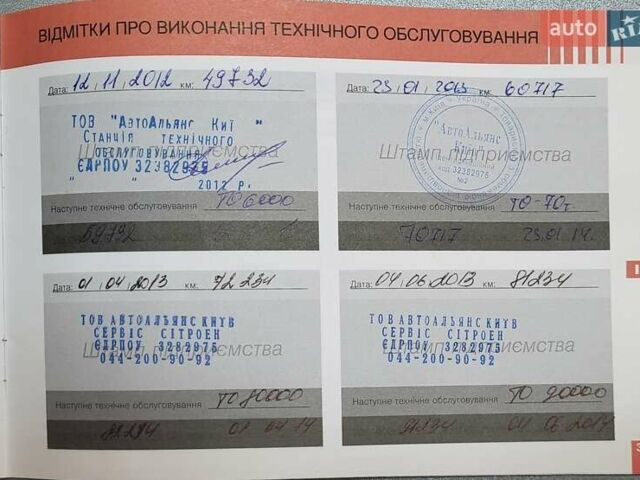 ВІДМІТКИ ПРО ВИКОНАННЯ ТЕХНІЧНОГО ОБСЛУГОВУВАННЯ
auto RIA
Дата: 12 11 2012 км: 49732
ТОВ "АвтоАльянс Киї "
Станція технічного
обслуговування
ЄДРПОУ 32382975
Штамп підприємства
2012 р.
Наступне технічне обслуговування ТО 6000
59732
Дата: 23 01 2013 км: 60717
"АвтоАльянс
Київ"
код 32382975
№2
Штамп підприємства
Наступне технічне обслуговування ТО-70т
70717 23.01.14.
Дата: 01 04 2013 км: 72 234
ТОВ АВТОАЛЬЯНС КИЇВ
СЕРВІС СІТРОЕН
ЄДРПОУ 3282975
044-200-90-92
Штамп підприємства
Наступне технічне обслуговування ТО 80000
82234 01 04 14
Дата: 04 06 2013 км: 81234
ТОВ АВТОАЛЬЯНС КИЇВ
СЕРВІС СІТРОЕН
ЄДРПОУ 3282975
044-200-90-92
Штамп підприємства
Наступне технічне обслуговування ТО 90000
91234 04 06 2014